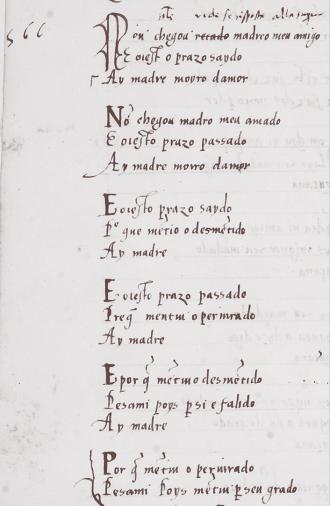 566
Non chegou recado madre o meu amigo
E oiest o prazo saydo
Ay madre moyro damor
Nõ chegou madro meu amado
E oiesto prazo passado
Ay madre moyro damor
E oiesto prazo saydo
Pº que mētio o desmētido
Ay madre
E oiesto prazo passado
Preq̄ mentiu o periurado
Ay madre
E por q̄ mētiu o desmētido
Pesami poys p si e falido
Ay madre
Por q̄ mētiu o periurado
Pesami poys mētiu p seu grado